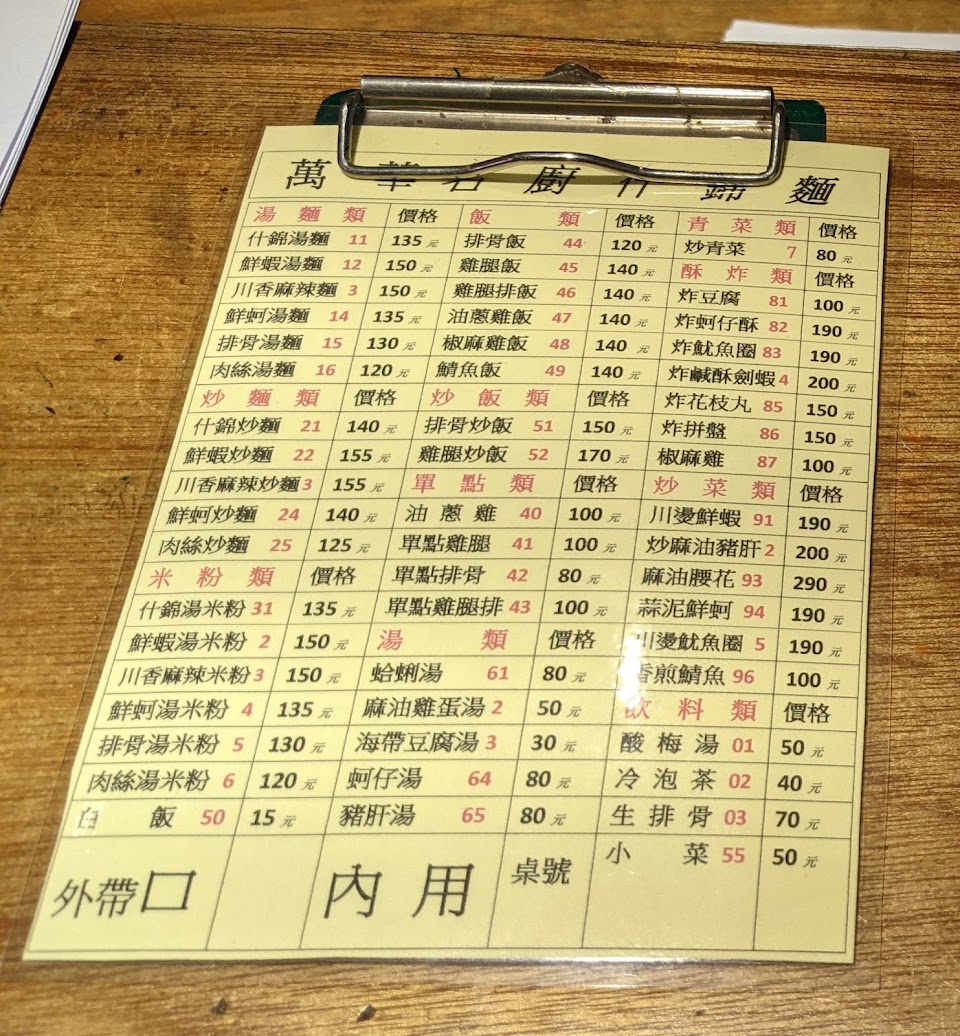 萬華名廚什錦麵
湯麵類 價格 飯類 價格 青菜類 價格
什錦湯麵 11 135元 排骨飯 44 120元 炒青菜 7 80元
鮮蝦湯麵 12 150元 雞腿飯 45 140元 酥炸類 價格
川香麻辣麵 3 150元 雞腿排飯 46 140元 炸豆腐 81 100元
鮮蚵湯麵 14 135元 油蔥雞飯 47 140元 炸蚵仔酥 82 190元
排骨湯麵 15 130元 椒麻雞飯 48 140元 炸魷魚圈 83 190元
肉絲湯麵 16 120元 鯖魚飯 49 140元 炸鹹酥劍蝦 4 200元
炒麵類 價格 炒飯類 價格 炸花枝丸 85 150元
什錦炒麵 21 140元 排骨炒飯 51 150元 炸拼盤 86 150元
鮮蝦炒麵 22 155元 雞腿炒飯 52 170元 椒麻雞 87 100元
川香麻辣炒麵 3 155元 單點類 價格 炒菜類 價格
鮮蚵炒麵 24 140元 油蔥雞 40 100元 川燙鮮蝦 91 190元
肉絲炒麵 25 125元 單點雞腿 41 100元 炒麻油豬肝 2 200元
米粉類 價格 單點排骨 42 80元 麻油腰花 93 290元
什錦湯米粉 31 135元 單點雞腿排 43 100元 蒜泥鮮蚵 94 190元
鮮蝦湯米粉 2 150元 湯類 價格 川燙魷魚圈 5 190元
川香麻辣米粉 3 150元 蛤蜊湯 61 80元 香煎鯖魚 96 100元
鮮蚵湯米粉 4 135元 麻油雞蛋湯 2 50元 飲料類 價格
排骨湯米粉 5 130元 海帶豆腐湯 3 30元 酸梅湯 01 50元
肉絲湯米粉 6 120元 蚵仔湯 64 80元 冷泡茶 02 40元
白飯 50 15元 豬肝湯 65 80元 生排骨 03 70元
外帶口 內用 桌號 小菜 55 50元